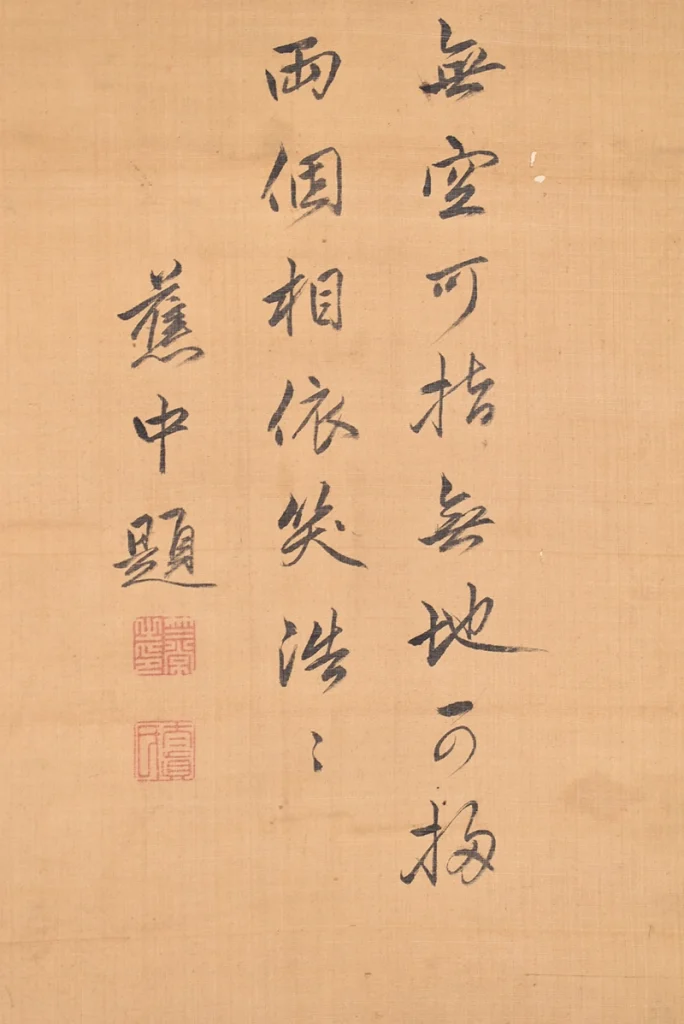 無空可指無地可掃
兩個相依笑浩〻
蕉中題